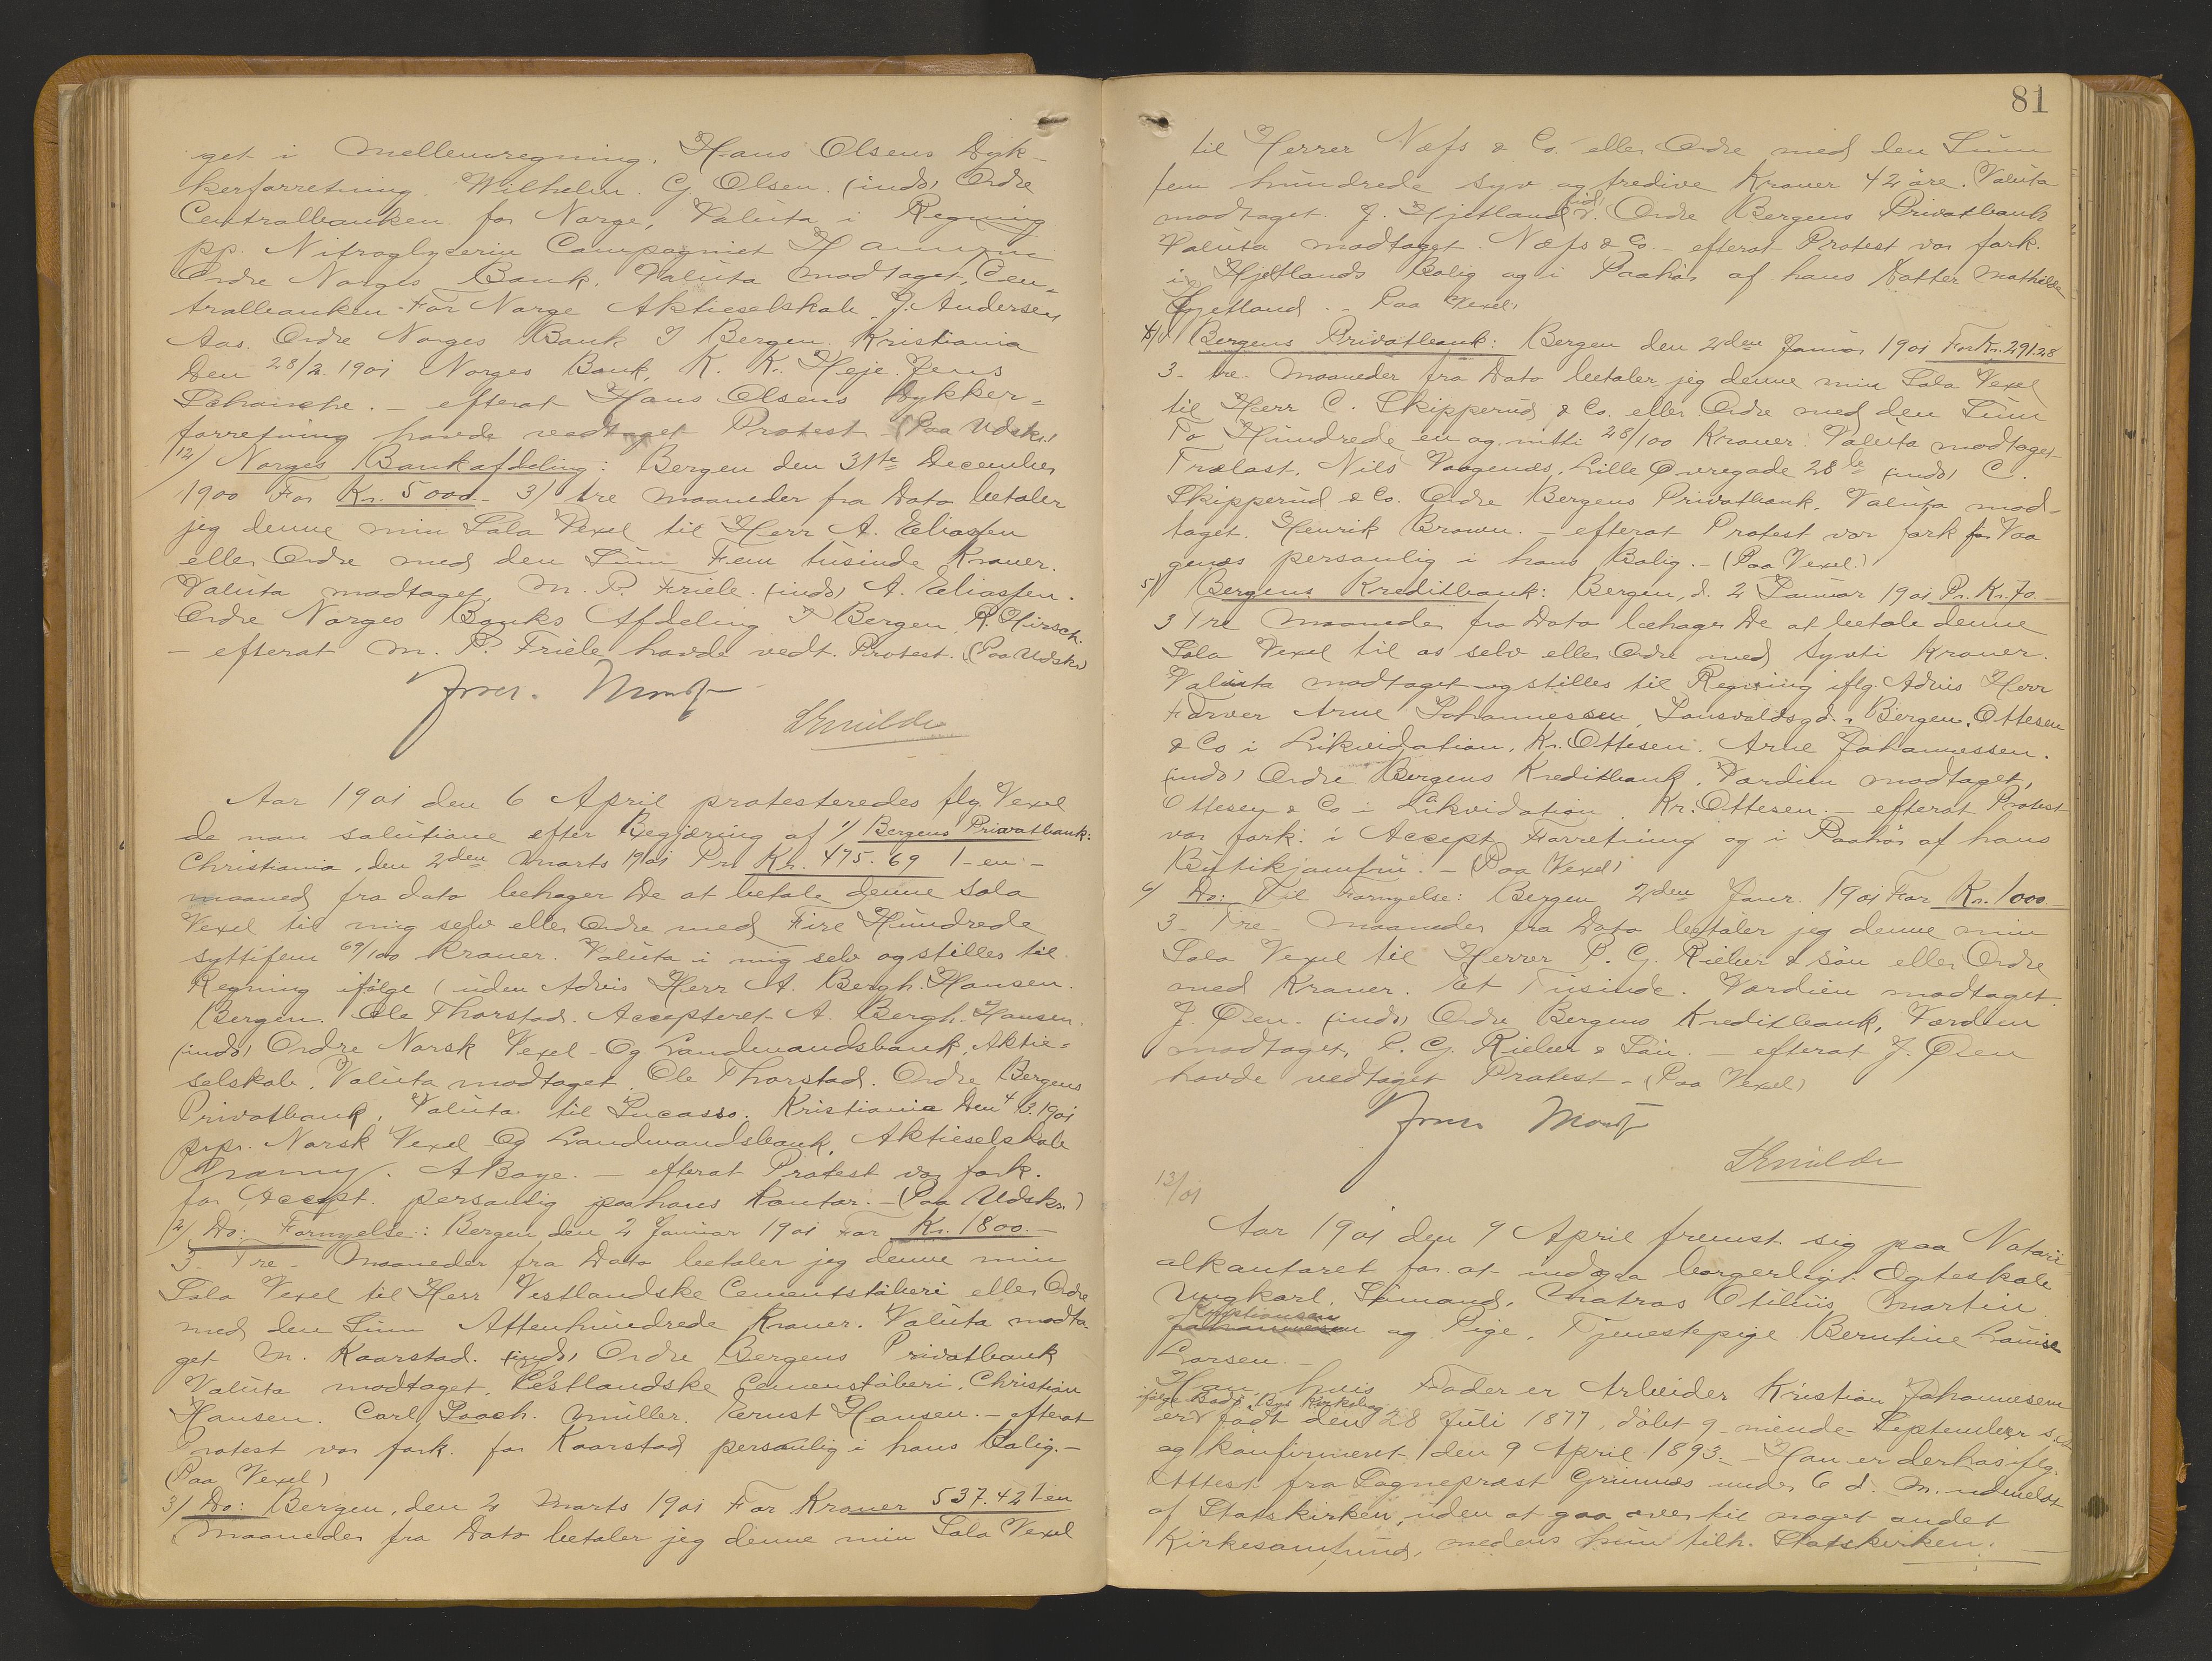 get i Mellemregning, Hans Olsens Dyk-
kerforretning. Wilhelm. G. Olsen. (indo) Ordre
Centralbanken for Norge, Valuta i Regning
pp. Nitroglycerin Compagniet
Ordre Norges Bank. Valuta modtaget, Cen-
tralbanken For Norge Aktieselskab. J. Andersen
Aas. Ordre Norges Bank I Bergen. Kristiania
Den 28/2. 1901 Norges Bank, K. K. Heje. Jens
efterat Hans Olsens Dykker-
forretning havde vedtaget Protest - (Paa Udskr.)
12) Norges Bankafdeling: Bergen den 31te December
1900 For Kr. 5000.- 3) tre Maaneder fra Dato betaler
jeg denne min Sola Vexel til Herr A. Eliassen
eller Ordre med den Sum Fem tusinde Kroner.
Valuta modtaget, M. P. Friele. (indo) A. Eliassen.
Ordre Norges Banks Afdeling I Bergen, R. Hirsch.
- efterat M. P. Friele havde vedt. Protest. (Paa Udskr)
Aar 1901 den 6 April protesteredes flg. Vexel
de non solutione efter Begjæring af 1/ Bergens Privatbank:
Christiania, den 2den Marts 1901 Pr. Kr. 475.69 1- en -
maaned fra dato behager De at betale denne Sola
Vexel til mig selv eller Ordre med Fire Hundrede
syttifem 69/100 Kroner. Valuta i mig selv og stilles til
Regning ifølge (uden Advis Herr A. Bergh. Hansen.
Bergen. Ole Thorstad. Accepteret A. Bergh. Hansen.
(indo) Ordre Norsk Vexel- Og Landmandsbank, Aktie-
selskab. Valuta modtaget. Ole Thorstad. Ordre Bergens
Privatbank. Valuta til Incasso. Kristiania Den 4/3. 1901
prpr. Norsk Vexel Og Landmandsbank, Aktieselskab
A Boye. - efterat Protest var fork.
for Accept. personlig paa hans Kontor. - (Paa Udskr.)
2) Do: Fornyelse: Bergen den 2 Januar 1901 For Kr. 1800.-
3- Tre - Maaneder fra Dato betaler jeg denne min
Sola Vexel til Herr Vestlandske Cementstøberi eller Ordre
med den Sum Attenhundrede Kroner. Valuta modta
get M. Kaarstad. (indo) Ordre Bergens Privatbank
Valuta modtaget, Vestlandske Cementstøberi. Christian
Hansen. Carl Müller. Ernst Hansen. - efterat
Protest var fork. for Kaarstad personlig i hans Bolig.-
(Paa Vexel)
3) Do: Bergen, den 2 Marts 1901 For Kroner 537.42 1 en
Maaneder fra Dato betaler jeg denne min Sola Vexel
81
til Herrer Næss & Co. eller Ordre med den Sum
fem hundrede syv og tredive Kroner 42 øre. Valuta
modtaget. J. Hjetland. Ordre Bergens Privatbank
Valuta modtaget. Næss & Co. - efterat Protest var fork.
i Hjetlands Bolig og i Paahør af hans Datter Mathilde
Hjetland. - Paa Vexel)
4) Bergens Privatbank: Bergen den 2den Januar 1901 For Kr. 291.28
3- tre- Maaneder fra Dato betaler jeg denne min Sola Vexel
til Herr C. Skipperud & Co. eller Ordre med den Sum
To Hundrede en og nitti 28/100 Kroner. Valuta modtaget
Trælast. Nils Vaagenæs. Lille Øvregade 28 (indo) C.
Skipperud & Co. Ordre Bergens Privatbank. Valuta mod-
taget. Henrik Brown. - efterat Protest var fork for Vaa
genæs personlig i hans Bolig. - (Paa Vexel.)
5) Bergens Kreditbank: Bergen, d. 2 Januar 1901 Pr. Kr. 70.-
3 Tre Maaneder fra Dato behager De at betale denne
Sola Vexel til os selv eller Ordre med Sytti Kroner.
Valuta modtaget og stilles til Regning iflg. Advis Herr
Farver Arne Johannessen, Bergen. Ottesen
& Co i Likvidation, Kr. Ottesen. Arne Johannessen.
(indo) Ordre Bergens Kreditbank. Værdien modtaget,
Ottesen & Co i Likvidation. Kr. Ottesen. - efterat Protest
var fork. i Accept. Forretning og i Paahør af hans
Butikjomfru. - (Paa Vexel)
6) Do: Til Fornyelse: Bergen 2den Janr. 1901 For Kr. 1000.-
3- Tre- Maaneder fra Dato betaler jeg denne min
Sola Vexel til Herrer P. G. Rieber & Søn eller Ordre
med Kroner. Et Tusinde. Værdien modtaget.
J. Øen. (indo) Ordre Bergens Kreditbank, Værdien
modtaget, P. G. Rieber & Søn. - efterat J. Øen
havde vedtaget Protest. - (Paa Vexel)
13/01
Aar 1901 den 9 April fremst. sig paa Notari-
alkontoret for at indgaa borgerligt Ægteskab
Ungkarl, Sømand, Matros Otilius Martin
Christiansen
og Pige, Tjenestepige Berntine Louise
Larsen. -
Han, hvis Fader er Arbeider Kristian Johannesen
ifølge Bodø Bys Kirkebog
er født den 28 Juli 1877, døbt 9-niende September s.A.
og konfirmeret den 9 April 1893. - Han er derhos iflg.
Attest fra Sogneprest Grimnes under 6 d. M. udmeldt
af Statskirken, uden at gaa over til noget andet
Kirkesamfund, medens hun tilh. Statskirken. -